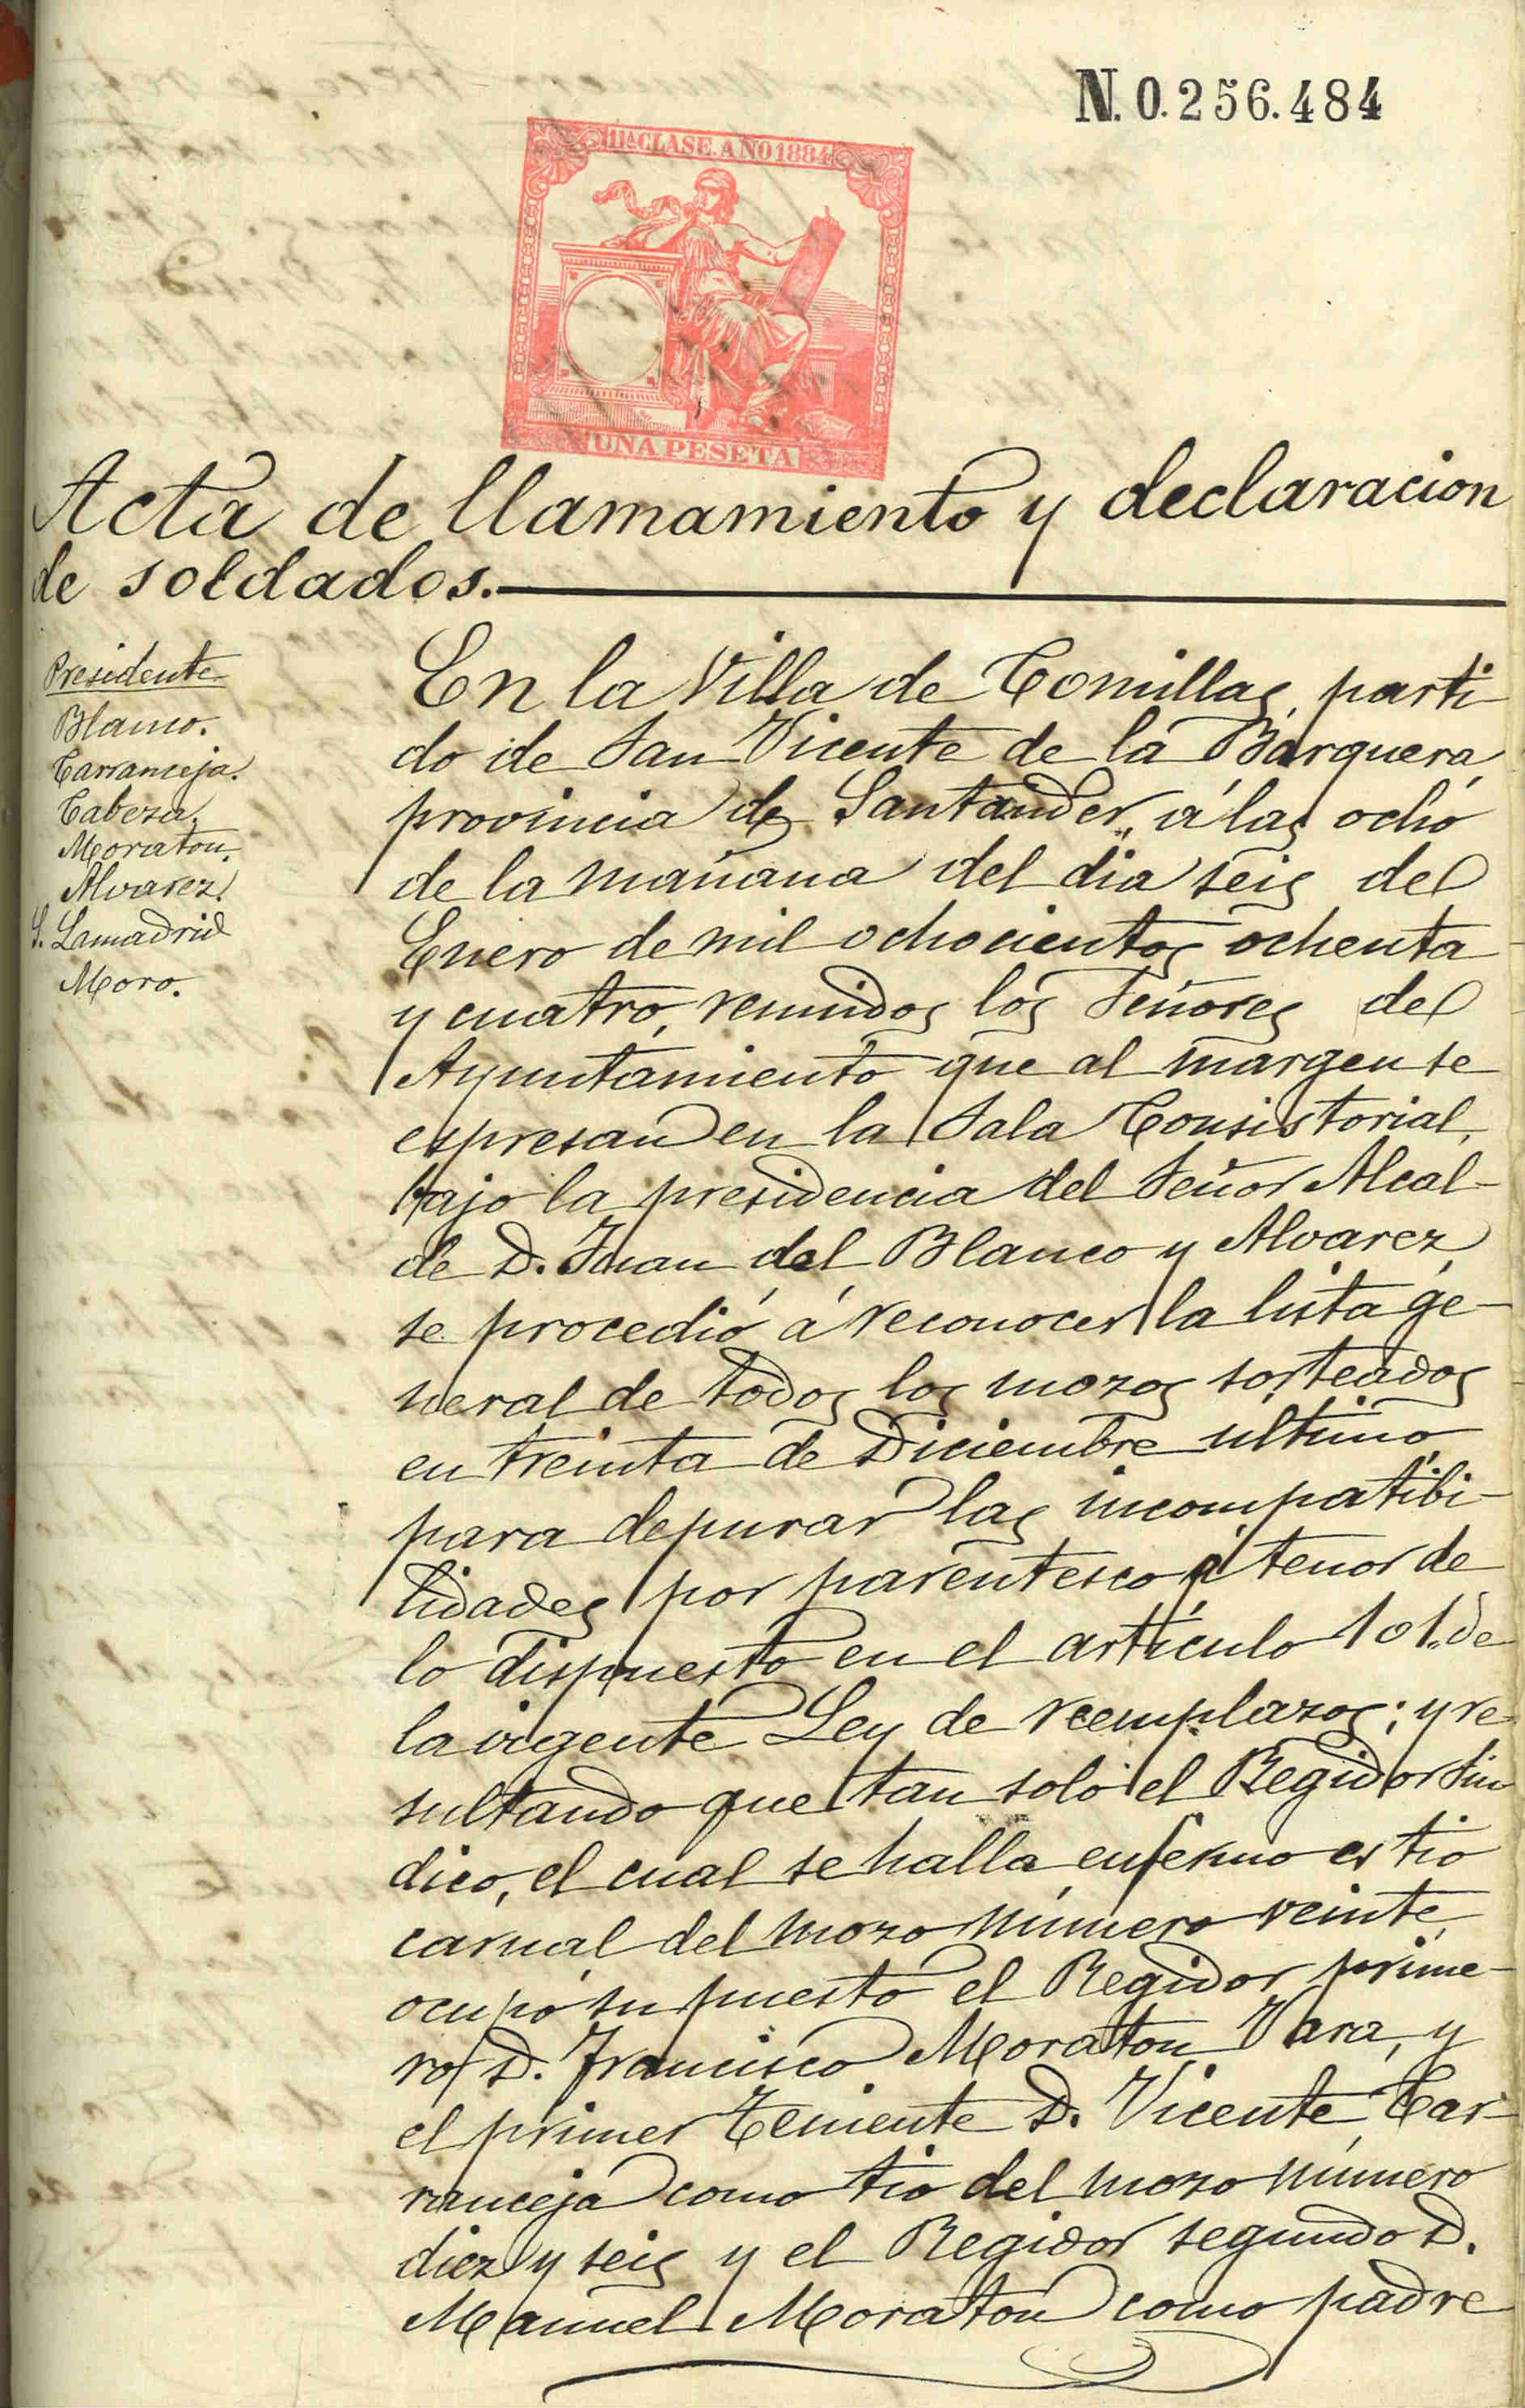 N. 0.256.484
11ª CLASE. AÑO 1884
UNA PESETA
Acta de llamamiento y declaracion
de soldados.
Presidente
Blanco.
Carranceja.
Cabeza.
Moraton.
Alvarez.
S. Lamadrid
Moro.
En la Villa de Comillas, parti-
do de San Vicente de la Barquera,
provincia de Santander, á las ocho
de la mañana del dia seis de
Enero de mil ochocientos ochenta
y cuatro, reunidos los Señores del
Ayuntamiento que al margen se
espresan en la Sala Consistorial,
bajo la presidencia del Señor Alcal-
de D. Juan del Blanco y Alvarez,
se procedió á reconocer la lista ge-
neral de todos los mozos sorteados
en treinta de Diciembre último,
para depurar las incompatibi-
lidades por parentesco á tenor de
lo dispuesto en el artículo 101. de
la vigente Ley de reemplazos; y re-
sultando que tan solo el Regidor Sín
dico, el cual se halla enfermo es tio
carnal del mozo número veinte,
ocupó su puesto el Regidor prime-
ro D. Francisco Moraton Vara, y
el primer Teniente D. Vicente Car-
ranceja como tio del mozo número
diez y seis y el Regidor segundo D.
Manuel Moraton como padre